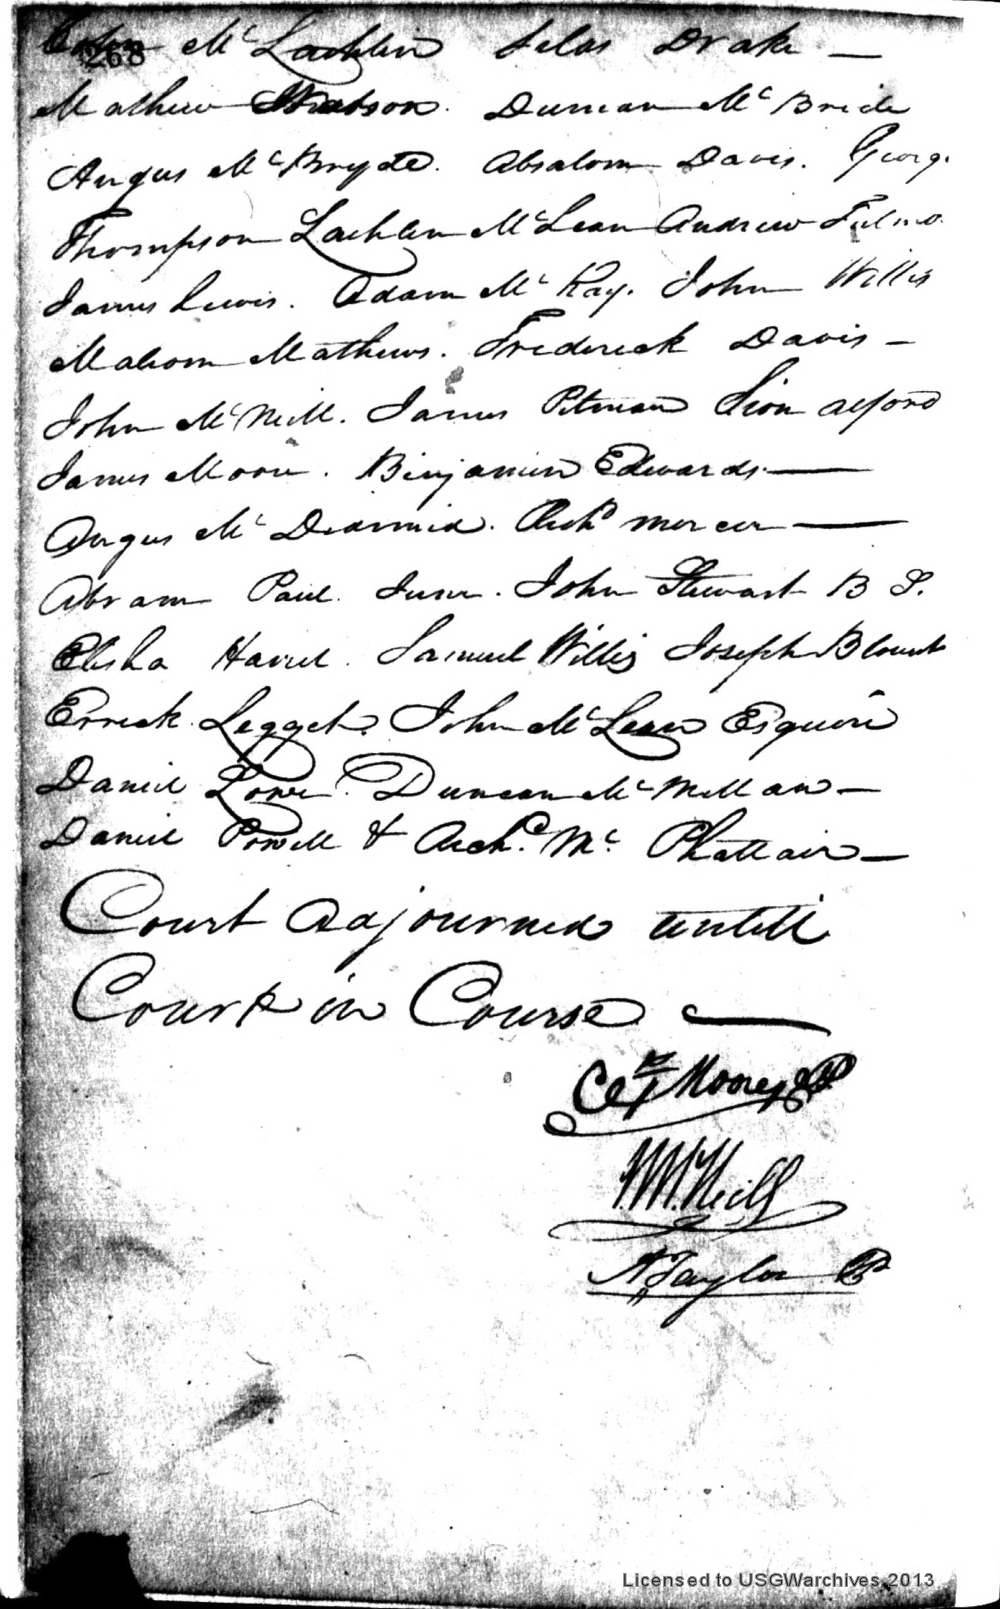 268
McLachlin Silas Drake —
Mathew Watson. Duncan McBride
Angus McBryde. Absalom Davis. George
Thompson Lachlin McLean Andrew
James Lewis. Adam McKay. John Willis
Malcom Mathews. Frederick Davis —
John McNeill. James Pitman Sion Alford
James Moore. Benjamin Edwards —
Angus McDearmid. Archd Mercer —
Abram Paul. Junr. John Stewart B S.
Elisha Harrel. Samuel Willis Joseph Blount
Errick Legget. John McLean Esquire
Daniel Lowe. Duncan McMillan —
Daniel Powell & Archd. Mc.
Court adjourned untill
Court in Course —
McNeill
Taylor
Licensed to USGWarchives 2013